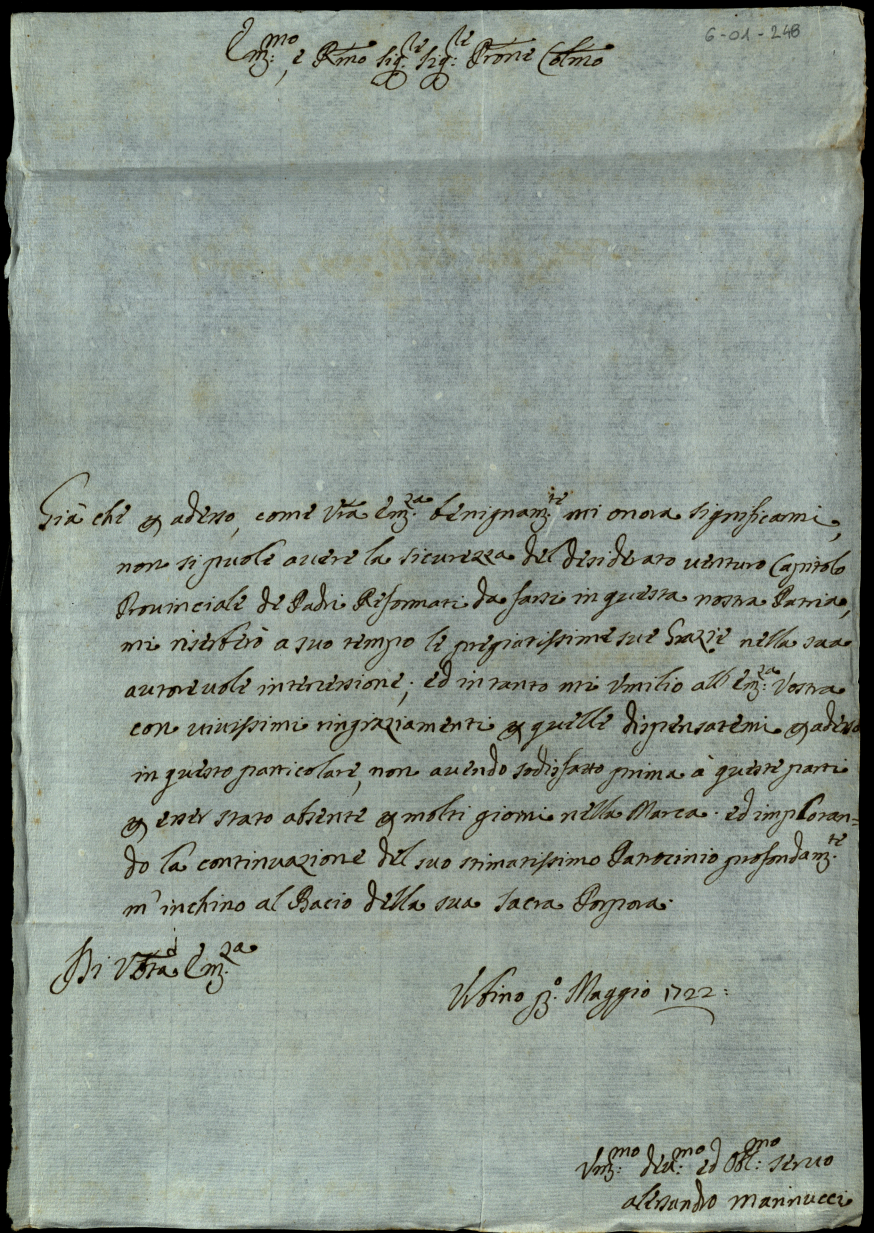 6-01-248
Em.mo, e Rmo Sig.re Sig.re Prone Colmo
Già che p adesso, come Vra Em.za benignam.te mi onora significarmi,
non si puole avere la sicurezza del desiderato venturo Capitolo
Provinciale de Padri Reformati da farsi in questa nostra Patria,
mi riserberò a suo tempo le pregiatissime sue Grazie nella sua
autorevole intercessione; ed in tanto mi Umilio all'Em.za Vostra
con vivissimi ringraziamenti p quelle dispensatemi p adesso
in questo particolare, non avendo sodisfatto prima à queste parti
p esser stato absente p molti giorni nella Marca. ed imploran=
do la continuazione del suo stimatissimo Patrocinio profondam.te
m'inchino al Bacio della sua Sacra Porpora.
Di Vra Em.za
Urbino p.o Maggio 1722:
Um.mo dev.mo ed Obl.mo servo
alessandro Mannucci